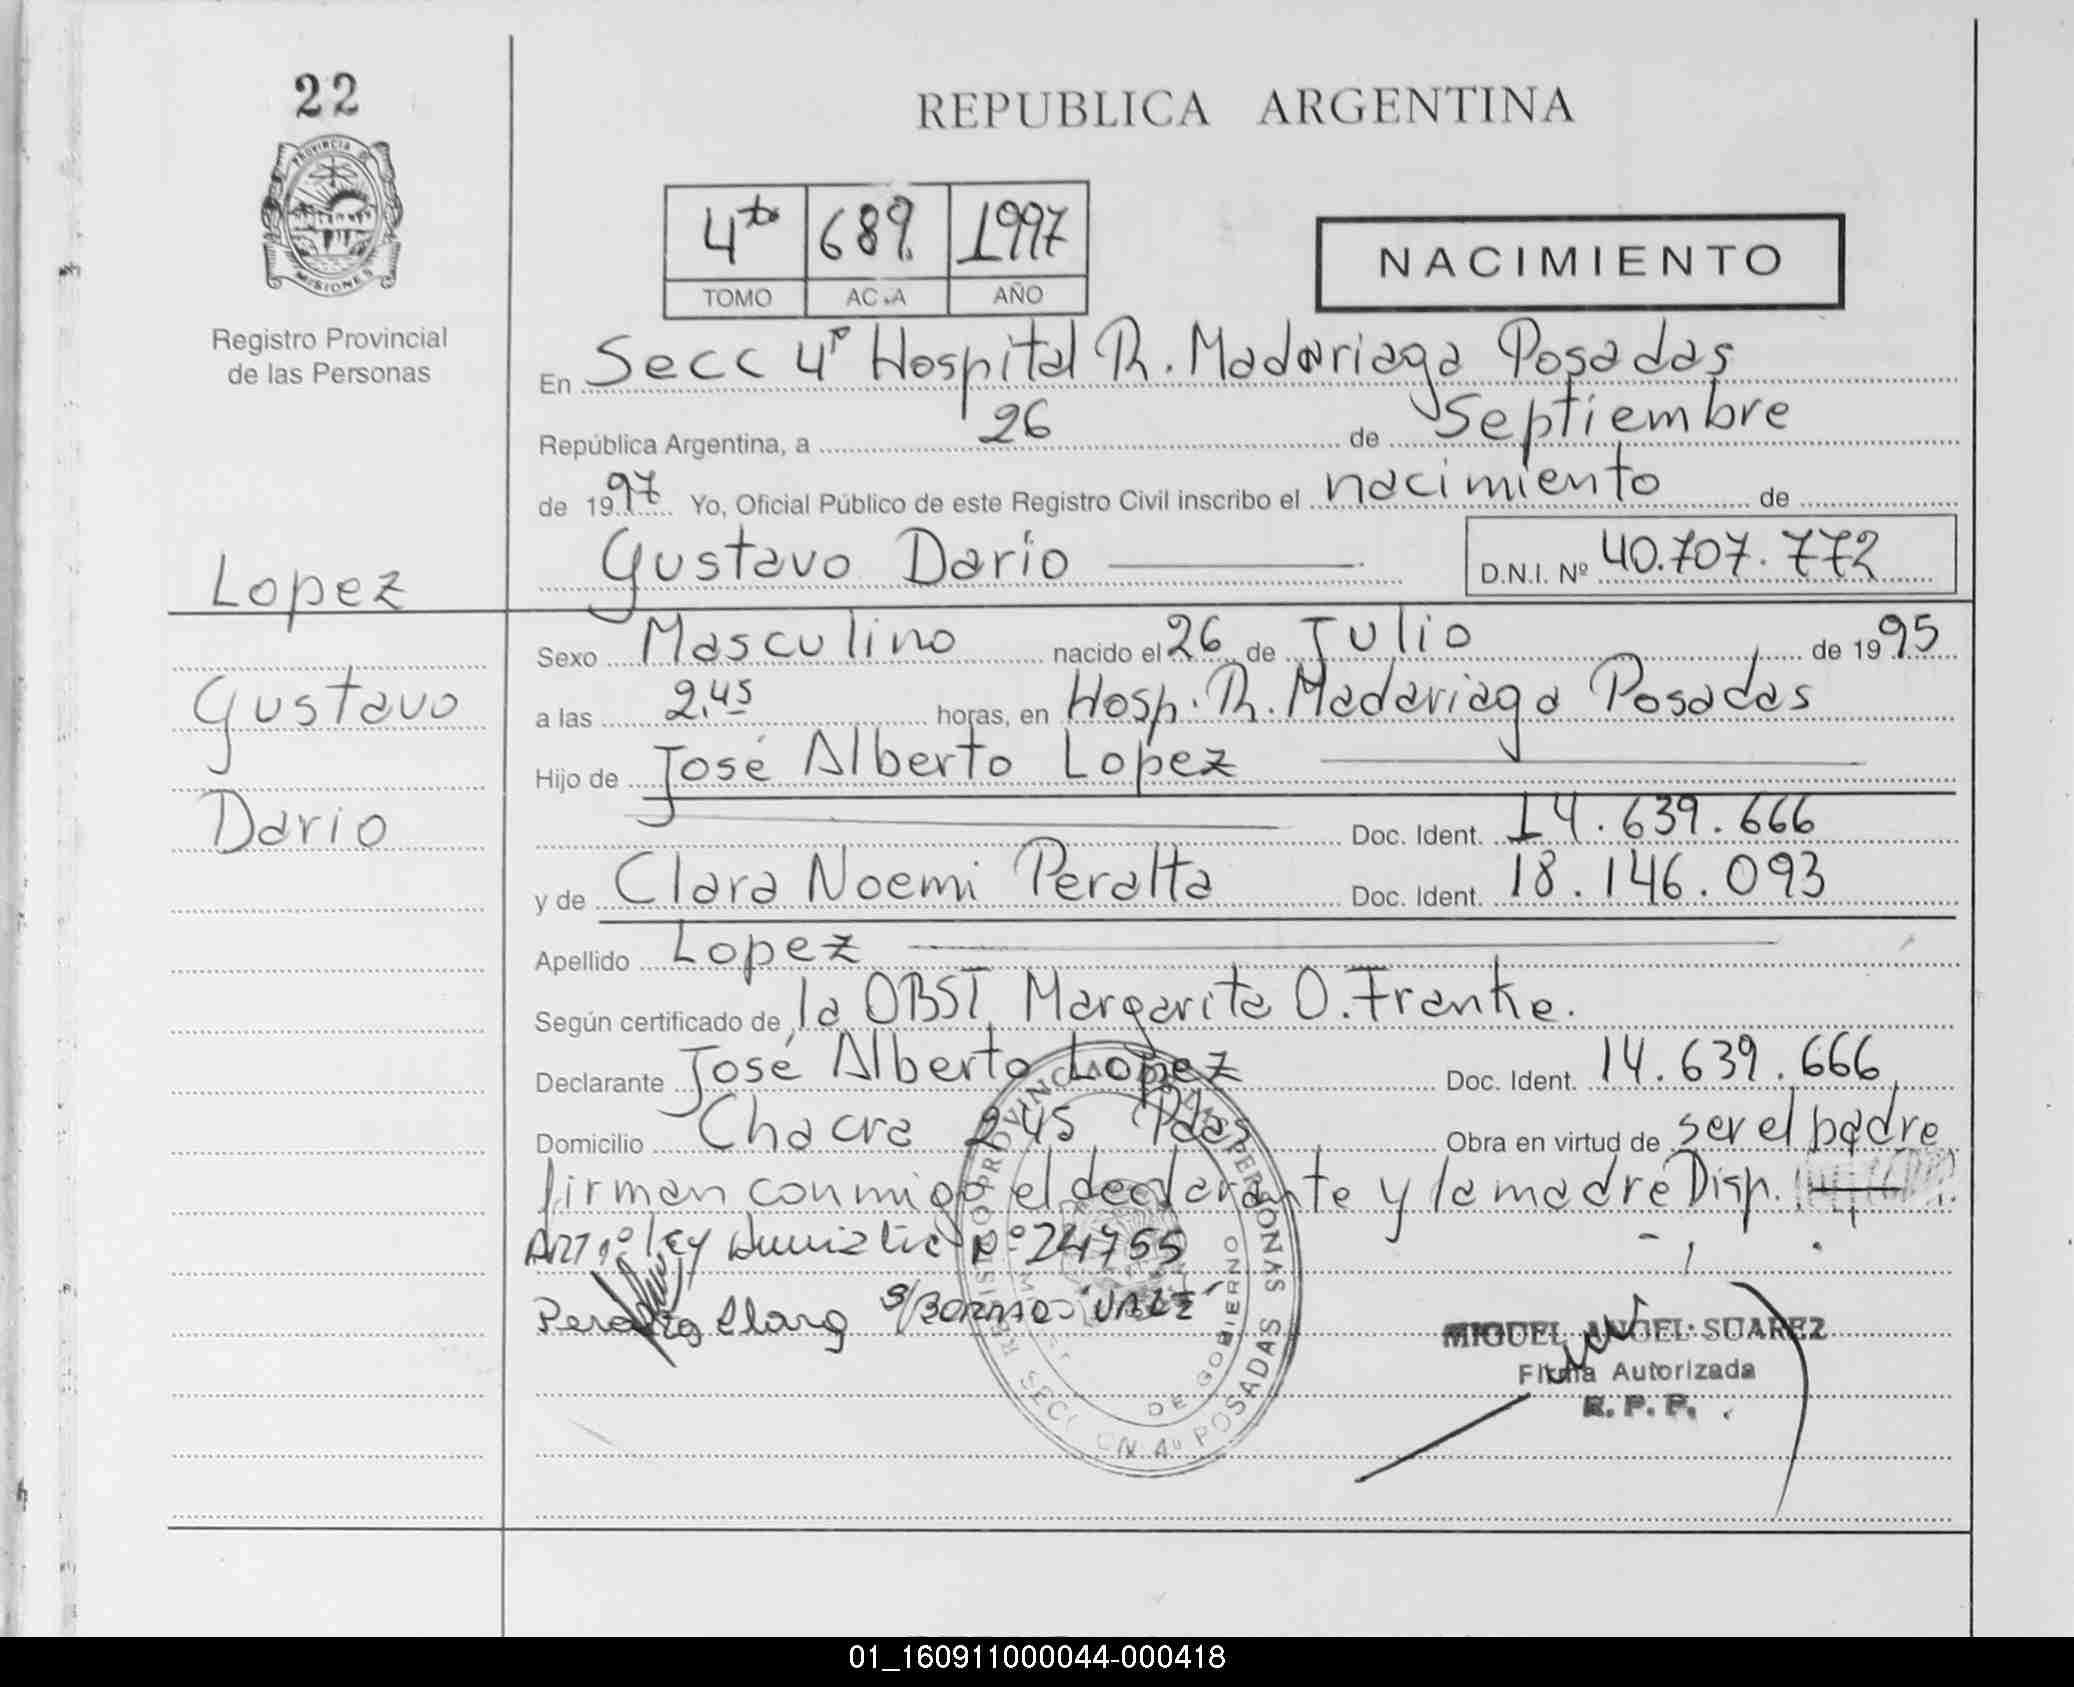 22
PROVINCIA DE
MISIONES
Registro Provincial
de las Personas
REPUBLICA ARGENTINA
4to 689 1997
TOMO AC A AÑO
NACIMIENTO
En Secc 4ª Hospital R. Madariaga Posadas
República Argentina, a 26 de Septiembre
de 1997 Yo, Oficial Público de este Registro Civil inscribo el nacimiento de
Gustavo Dario D.N.I. Nº 40.707.772
Lopez
Gustavo
Dario
Sexo Masculino nacido el 26 de Julio de 1995
a las 2,45 horas, en Hosp. R. Madariaga Posadas
Hijo de José Alberto Lopez
Doc. Ident. 14.639.666
y de Clara Noemi Peralta Doc. Ident. 18.146.093
Apellido Lopez
Según certificado de la OBST Margarita O. Franke.
Declarante José Alberto Lopez Doc. Ident. 14.639.666
Domicilio Chacra 245 Pdas Obra en virtud de ser el padre
firman conmigo el declarante y la madre Disp.
ART 1º ley Nº 24755
Peralta Clara S/BORRADO VALE
MIGUEL ANGEL SUAREZ
Firma Autorizada
R. P. P.
DE GOBIERNO
POSADAS
01_160911000044-000418